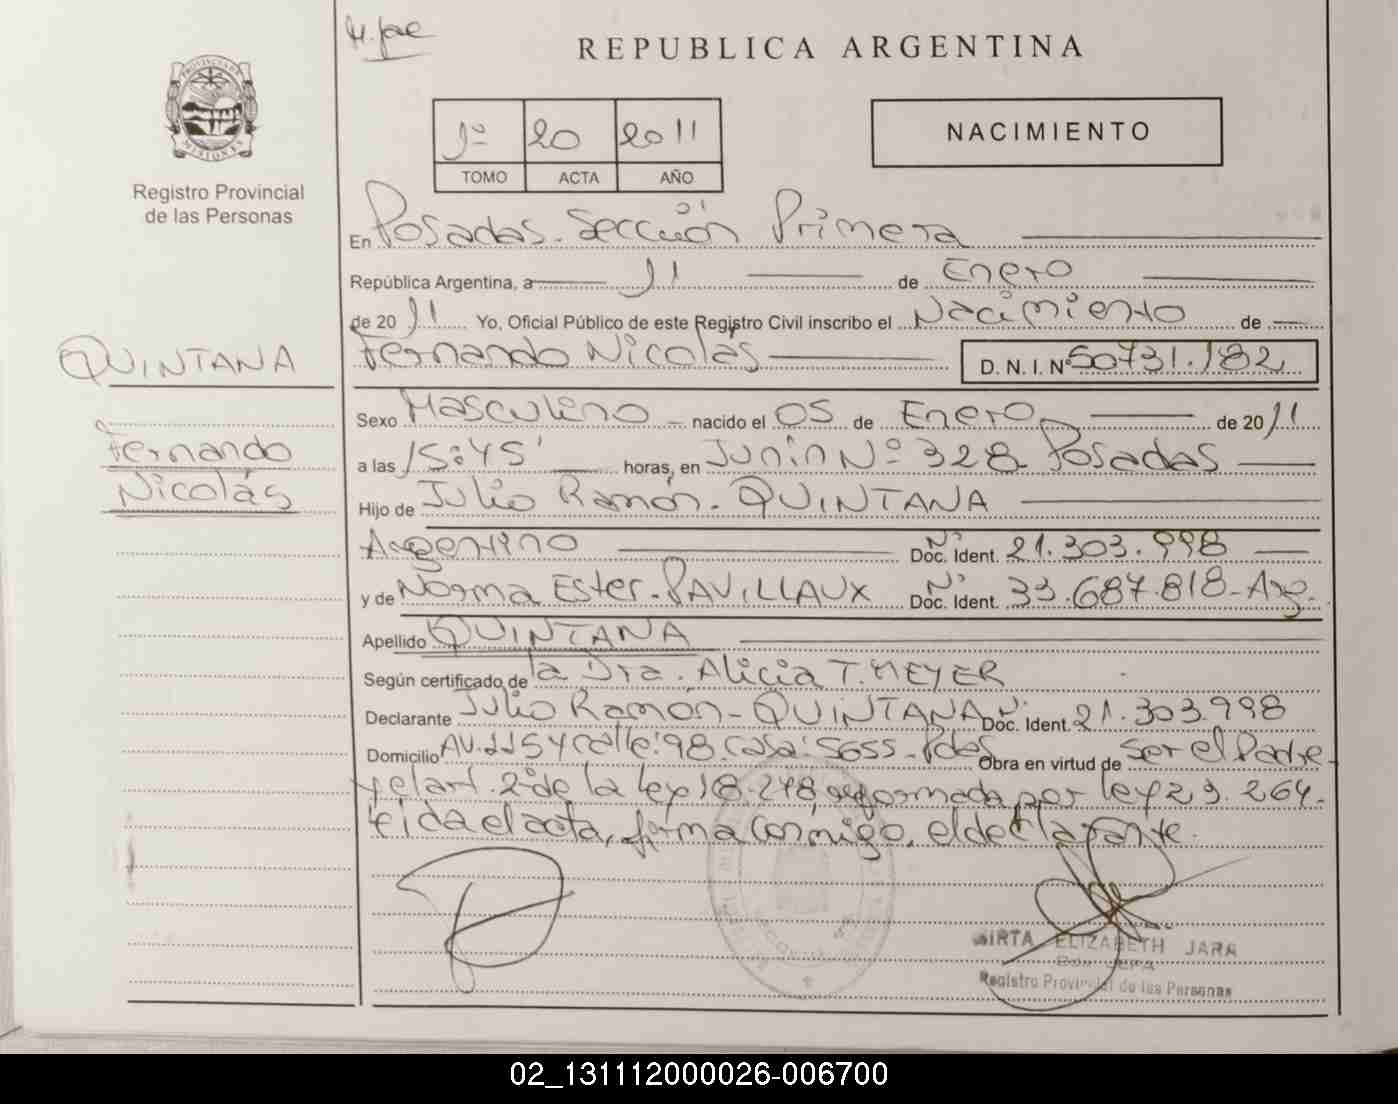 PROVINCIA DE
MISIONES
Registro Provincial
de las Personas
REPUBLICA ARGENTINA
1º 20 2011
TOMO ACTA AÑO
NACIMIENTO
En Posadas. Sección Primera
República Argentina, a 11 de Enero
de 2011 Yo, Oficial Público de este Registro Civil inscribo el Nacimiento de
Fernando Nicolás D. N. I. Nº 50731.182
QUINTANA
Fernando
Nicolás
Sexo Masculino nacido el 05 de Enero de 2011
a las 15:45' horas, en Junín Nº 328 Posadas
Hijo de Julio Ramón. QUINTANA
Argentino Nº Doc. Ident. 21.303.998
y de Norma Ester. PAVILLAUX Nº Doc. Ident. 33.687.818-Arg.
Apellido QUINTANA
Según certificado de la Dra. Alicia T. MEYER
Declarante Julio Ramón-QUINTANA Nº Doc. Ident. 21.303.998
Domicilio AV. 115 y calle: 98. casa: 5655-Pdas Obra en virtud de Ser el Padre
y el art. 2º de la Ley 18.248, reformada por Ley 23.264.
Leída el acta, firma conmigo, el declarante.
MIRTA ELIZABETH JARA
Registro Provincial de las Personas
02_131112000026-006700